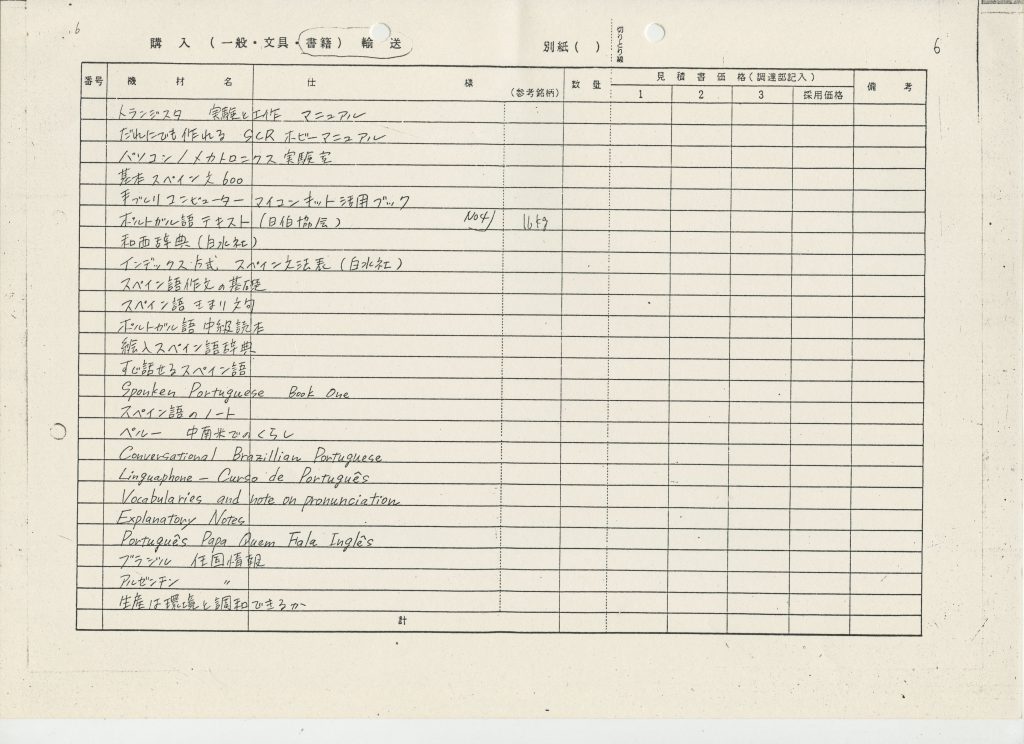 6
購入（一般・文具・書籍）輸送 別紙（ ） 切りとり線 6
番号 機材名 仕様 （参考銘柄） 数量 見積書価格（調達部記入） 備考
1 2 3 採用価格
トランジスタ 実験と工作 マニュアル
だれにでも作れる SCR ホビーマニュアル
パソコン/メカトロニクス実験室
基本スペイン文600
手づくりコンピューター マイコンキット活用ブック
ポルトガル語テキスト（日伯協会） No41 16kg
和西辞典（白水社）
インデックス方式 スペイン文法表（白水社）
スペイン語作文の基礎
スペイン語 きまり文句
ポルトガル語 中級読本
絵入スペイン語辞典
すぐ話せるスペイン語
Spouken Portuguese Book One
スペイン語のノート
ペルー 中南米でのくらし
Conversational Brazillian Portuguese
Linguaphone - Curso de Português
Vocabularies and note on pronunciation
Explanatory Notes
Português Papa Quem Fala Inglês
ブラジル 任国情報
アルゼンチン 〃
生産は環境と調和できるか
計